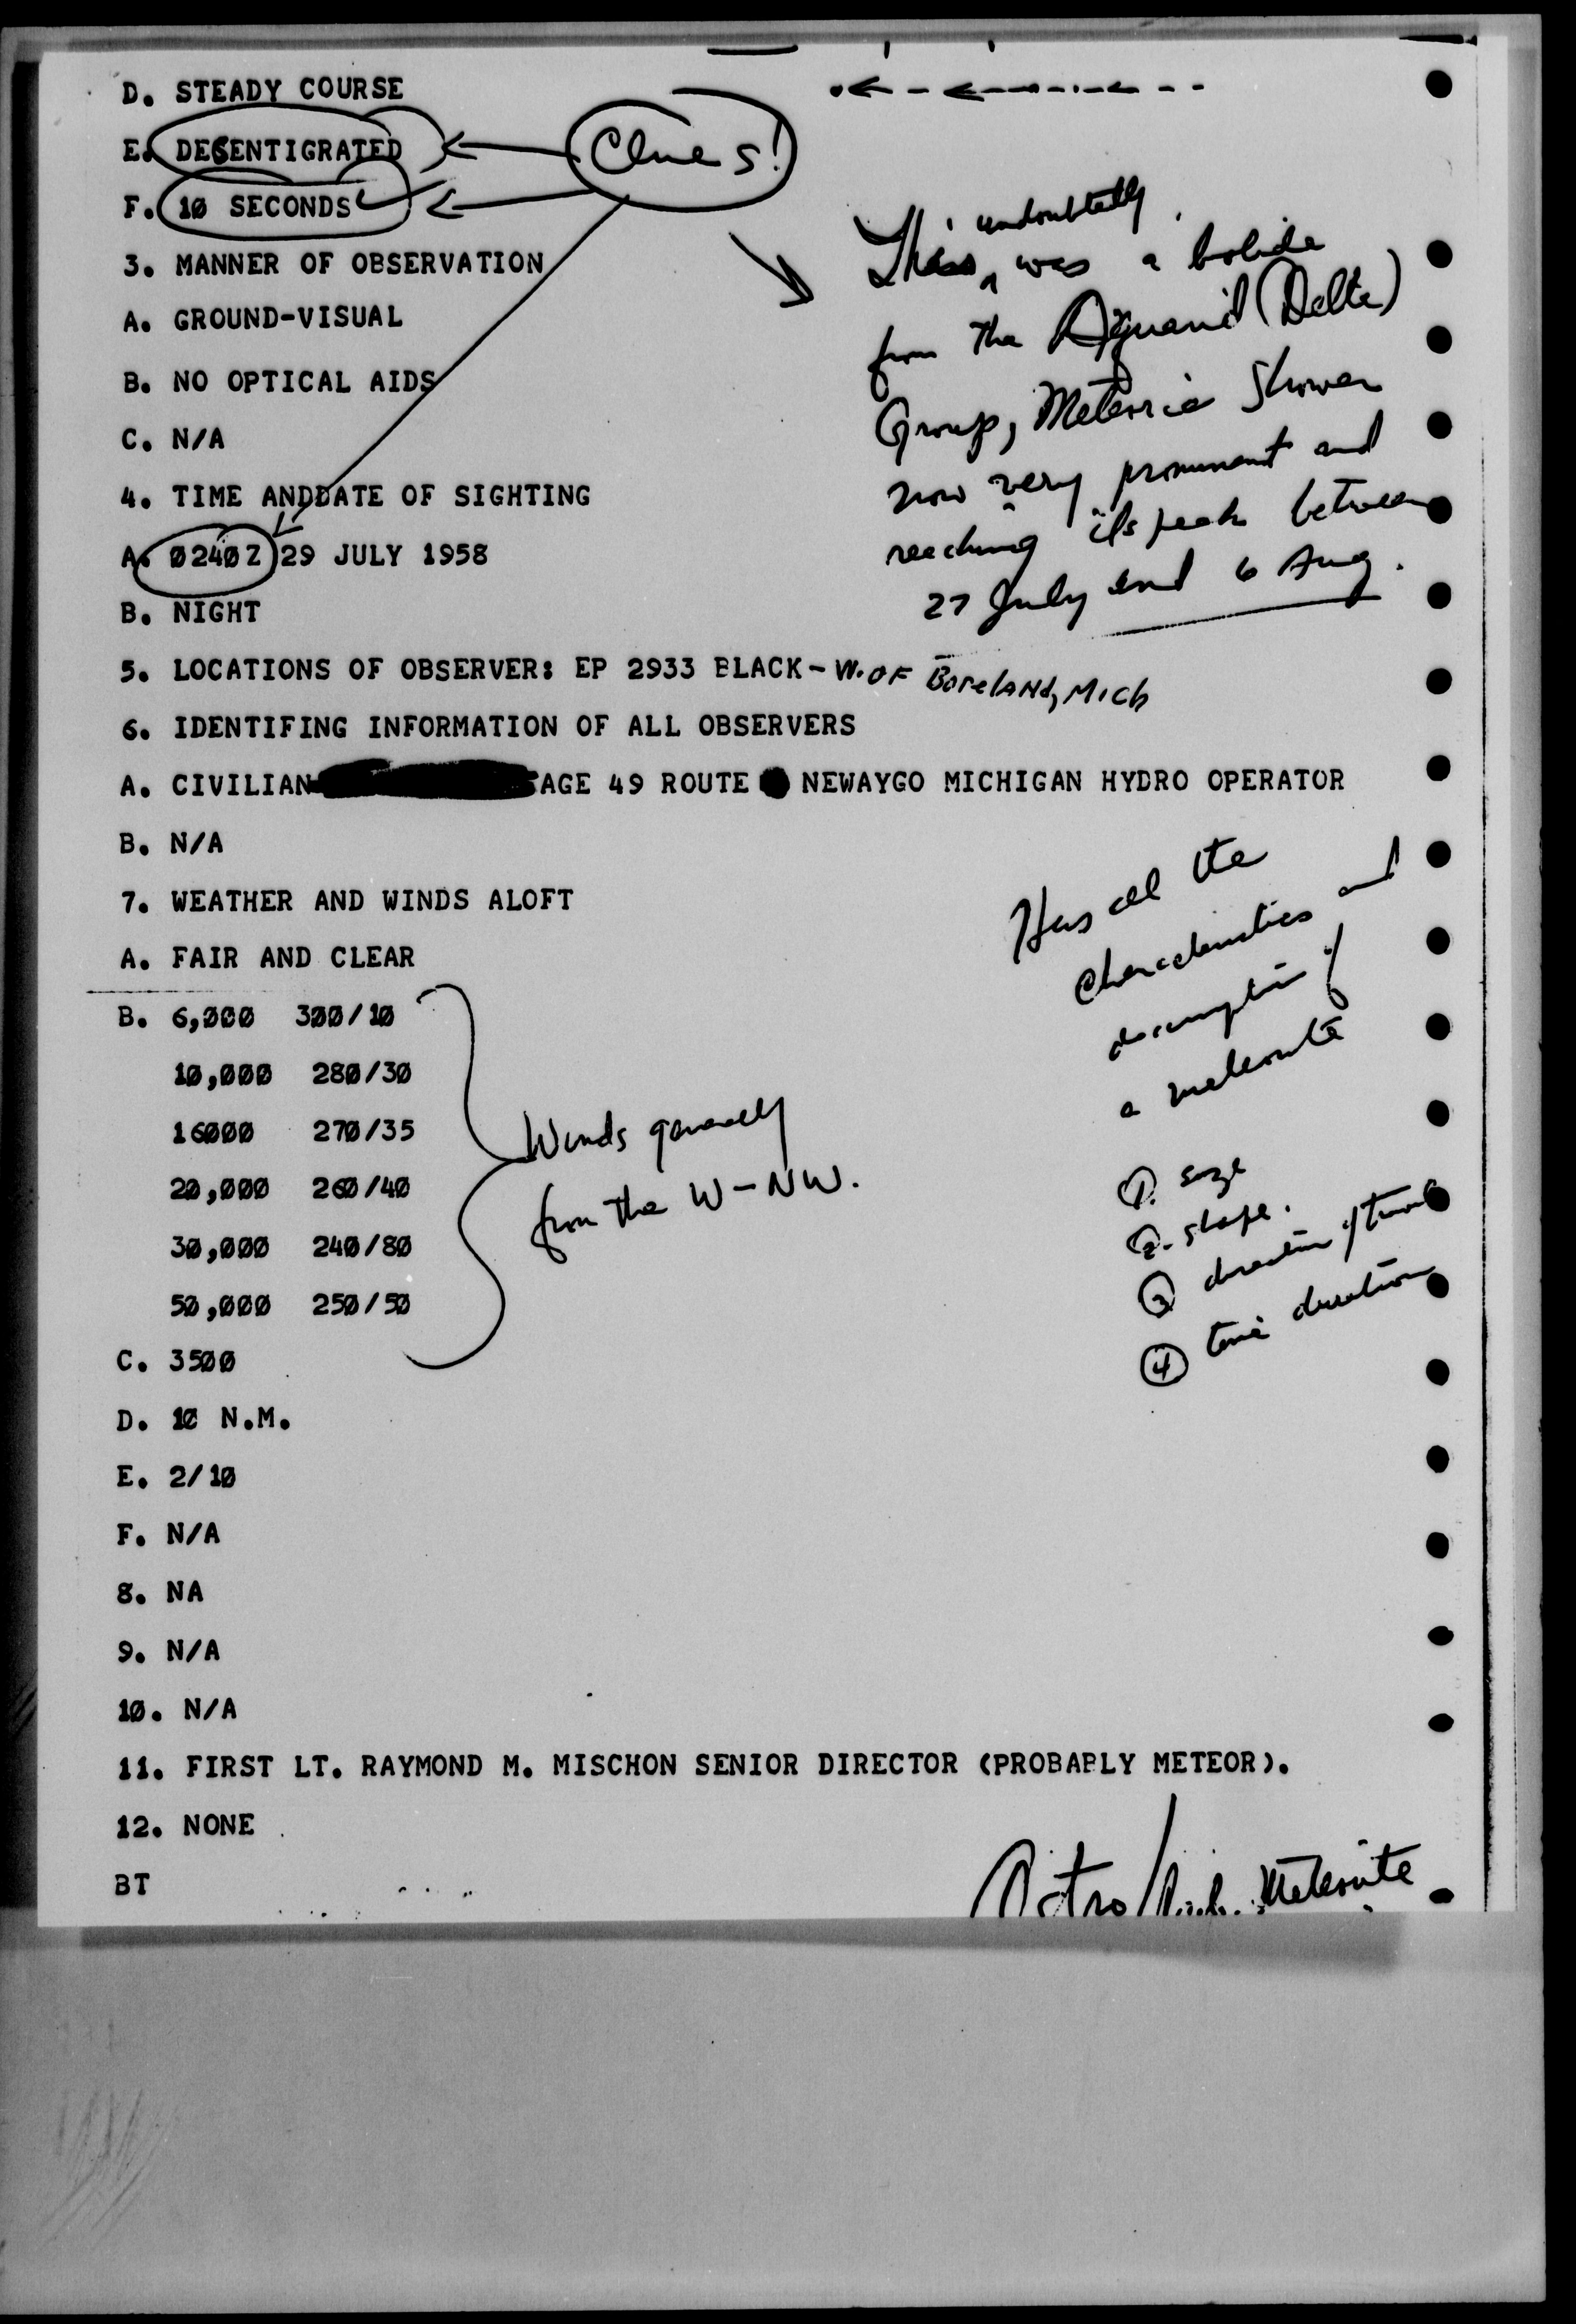 D. STEADY COURSE
E. DESENTIGRATED
Clues!
F. 10 SECONDS
This undoubtedly was a bolide
from the Aquarid (Delta)
Group, Meteoric Shower
now very prominent and
reaching its peak between
27 July and 6 Aug.
3. MANNER OF OBSERVATION
A. GROUND-VISUAL
B. NO OPTICAL AIDS
C. N/A
4. TIME ANDDATE OF SIGHTING
A. 0240Z 29 JULY 1958
B. NIGHT
5. LOCATIONS OF OBSERVER: EP 2933 BLACK - W. OF Boreland, Mich
6. IDENTIFING INFORMATION OF ALL OBSERVERS
A. CIVILIAN AGE 49 ROUTE NEWAYGO MICHIGAN HYDRO OPERATOR
B. N/A
7. WEATHER AND WINDS ALOFT
A. FAIR AND CLEAR
Has all the
characteristics and
description of
a meteorite
① size
② shape.
③ direction of travel
④ time duration
B. 6,000 300/10
10,000 280/30
16000 270/35
20,000 260/40
30,000 240/80
50,000 250/50
Winds generally
from the W-NW.
C. 3500
D. 10 N.M.
E. 2/10
F. N/A
8. NA
9. N/A
10. N/A
11. FIRST LT. RAYMOND M. MISCHON SENIOR DIRECTOR (PROBABLY METEOR).
12. NONE
BT
Astro / Meteorite